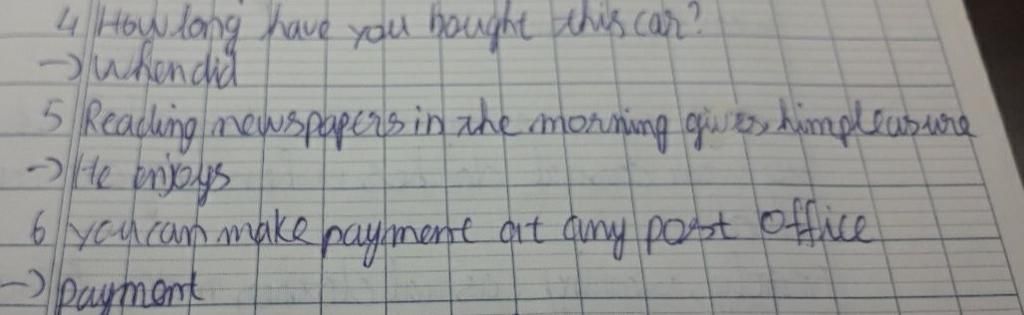 4 How long have you bought this car?
→ When did
5 Reading newspapers in the morning gives him pleasure
→ He enjoys
6 you can make payment at any post office
→ payment